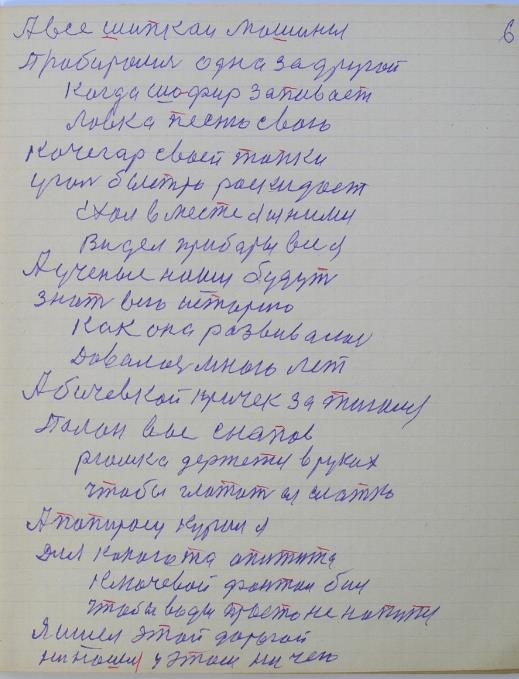 6
А все шипкаи машины
Прабирамия одна за другой
Когда шофир запивает
Ловка песню свою
Кочегар своей топки
угол быстро раскидает
Ехол вместе я шними
Видел прибары все я
А ученые нашы будут
знат всю историю
Как она развивалас
Довалас много лет
А бичевкой причек за тигалия
Полон вое снапов
рюмка держети в руких
чтобы глотат ея слатко
А папиросу курил я
Для каногота апитита
Ключевой фонтан бил
чтобы воды просто не напити
Я ишел этой дорогой
ни нашел у этом ни чего